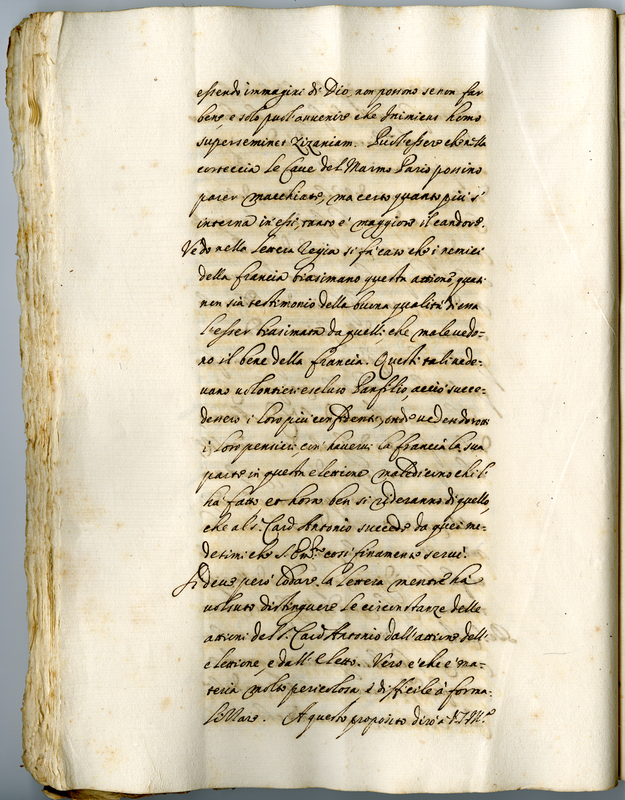 essendo immagini di Dio, non possono se non far
bene, e solo puol avvenire che Inimicus homo
superseminet Zizaniam. Puol essere che nella
corteccia le Cave del Marmo Pario possino
parer macchiate, ma certo quanto più s'
interna in essi, tanto è maggiore il candore.
Vedo nella lettera Regia si fà caso che i nemici
della francia biasimano questa attione, quasi
non sia testimonio della buona qualità di essa
l'esser biasimata da quelli che malevedo-
no il bene della francia. Questi tali vede-
vano volontieri escluso Panfilio, acciò succe-
dessero i loro più confidenti, onde vedendo rotti
i loro pensieri con havervi la francia la sua
parte in questa elettione maledicono chi l'
ha fatto et horo ben si rideranno di quello,
che al S. Card Antonio succede da quei me-
desimi che S. Em.za così finamente servì.
Si deve però lodare la lettera mentre ha
voluto distinguere le circonstanze delle
attioni del S. Card Antonio dall'attione dell'
elettione, e dall'Eletto. Vero è che è ma-
teria molto pericolosa, è difficile à forma-
lizzare. A questo proposito dirò a V.S.Ill.ma